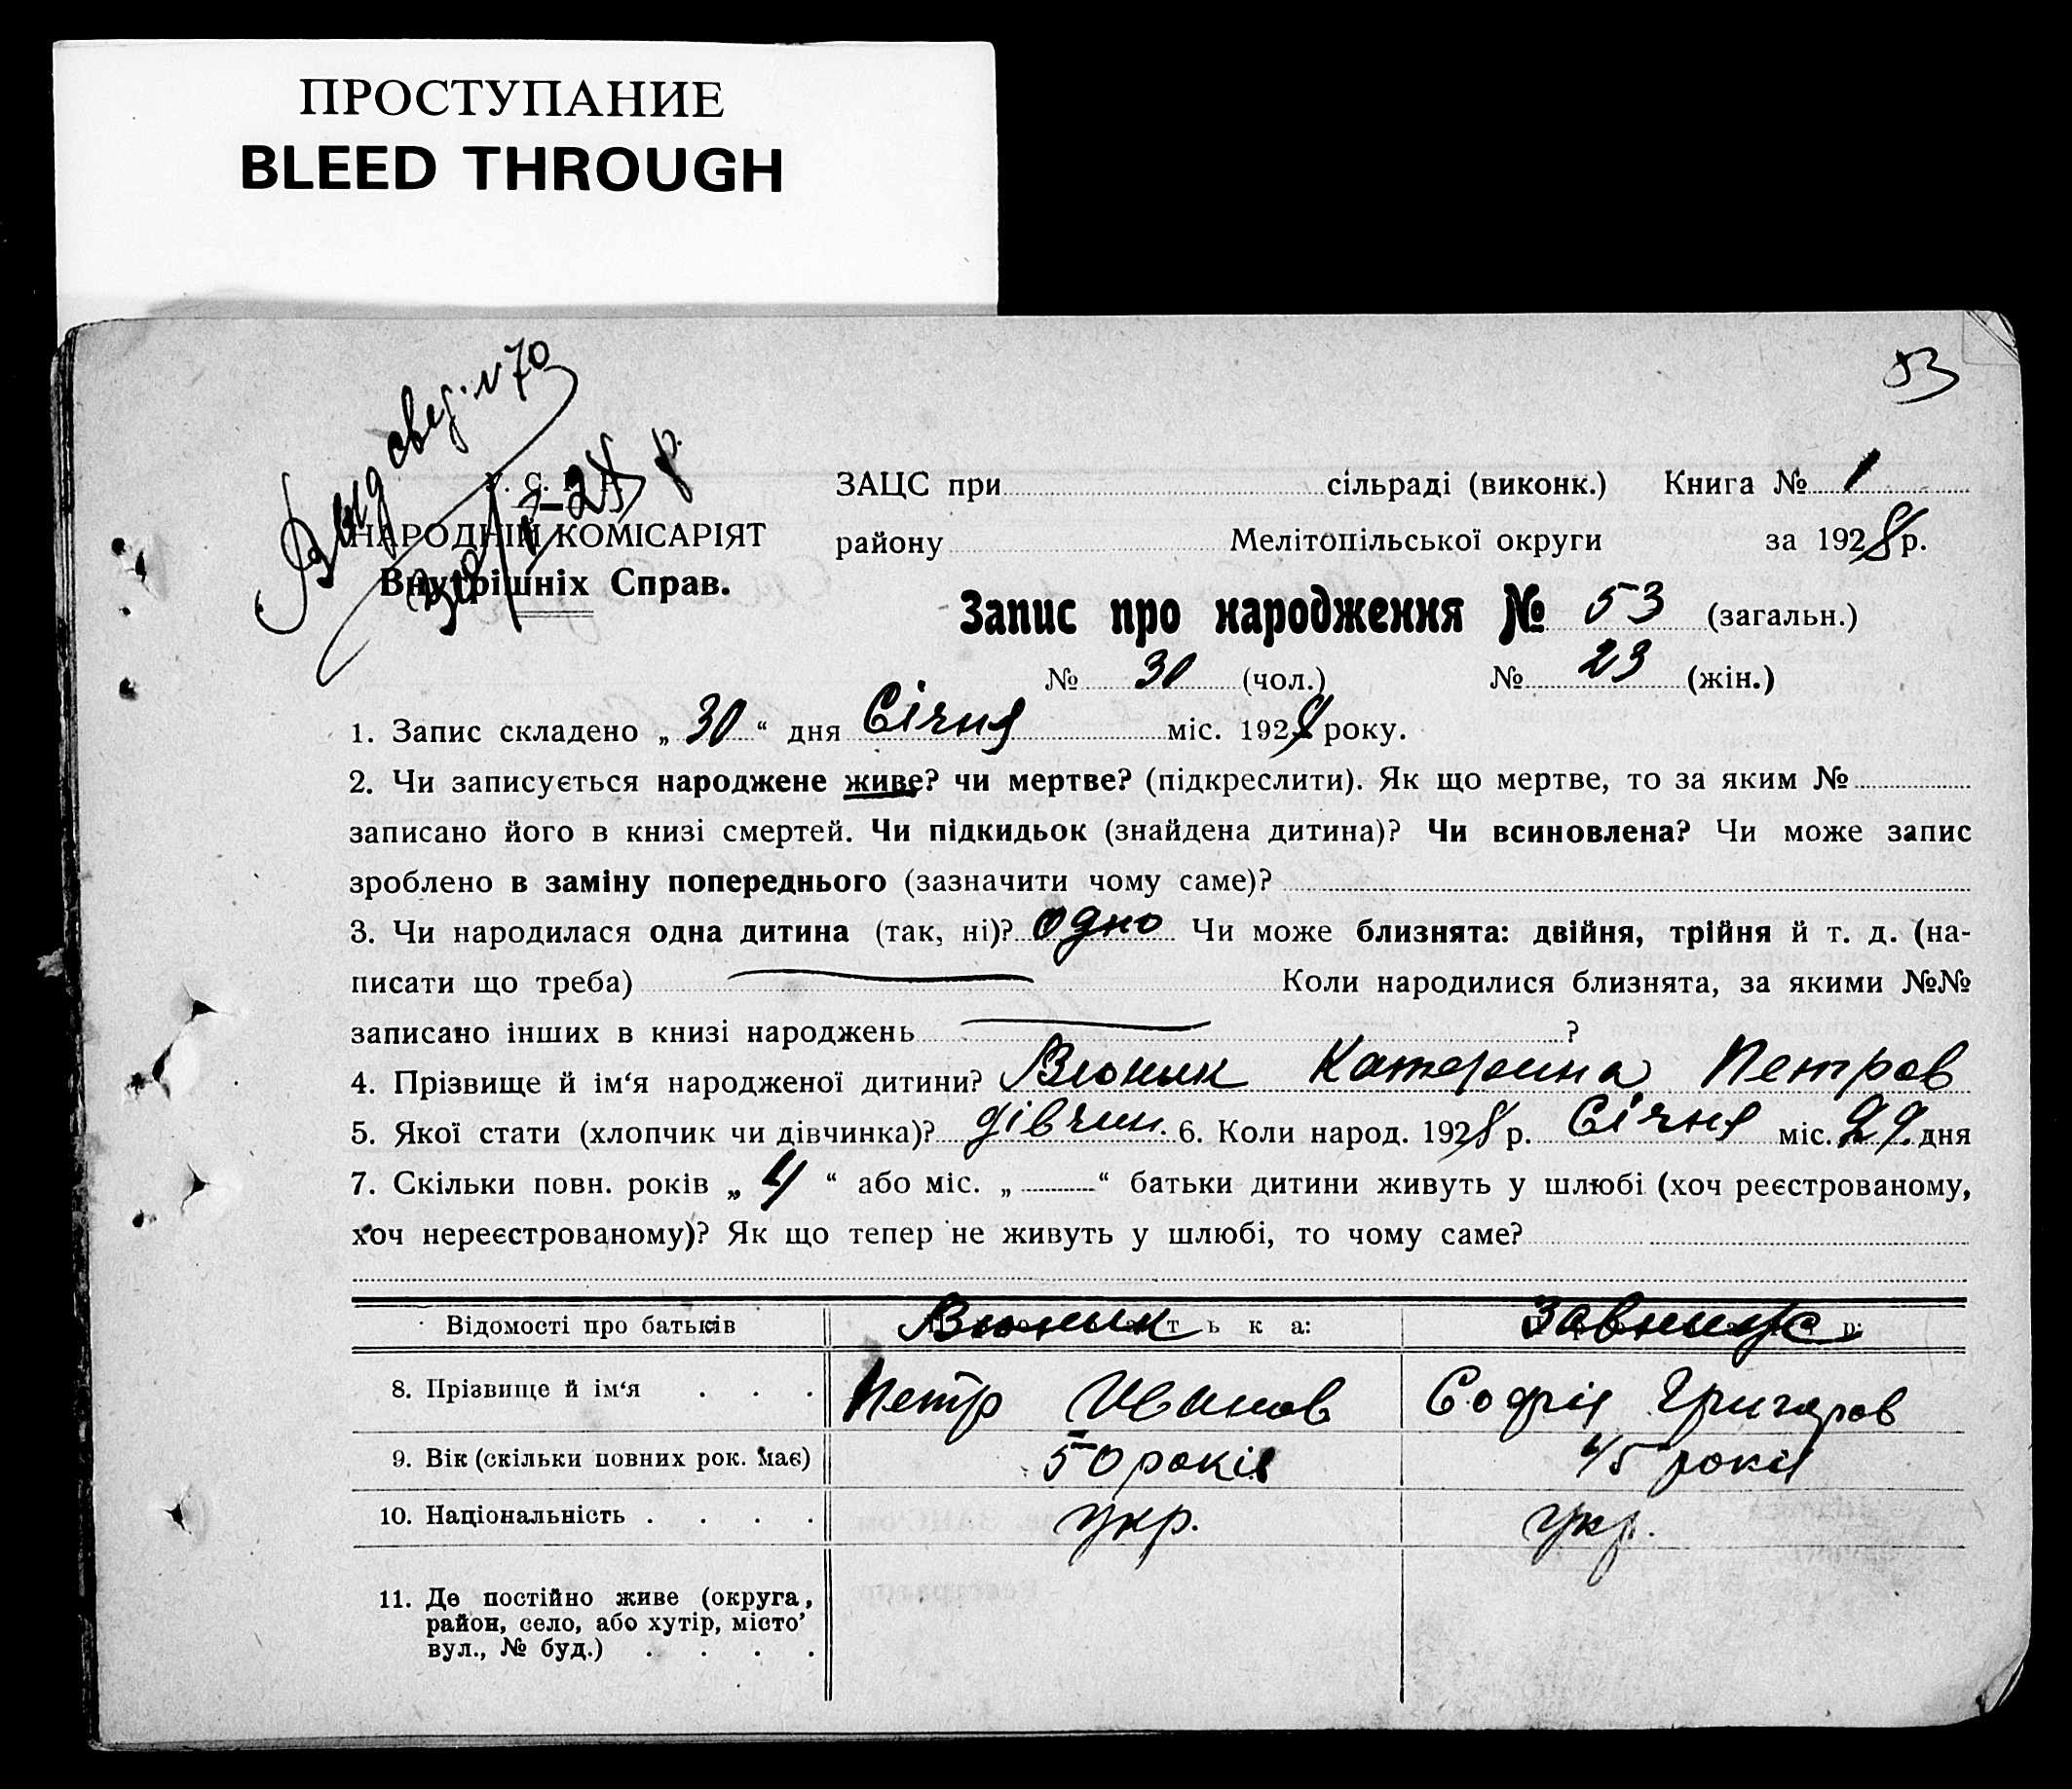 ПРОСТУПАНИЕ
BLEED THROUGH
53
Выд свед. N 70
30/I-28 р.
У. С. Р. Р.
НАРОДНІЙ КОМІСАРІЯТ
Внутрішніх Справ.
ЗАЦС при сільраді (виконк.) Книга № 1
району Мелітопільської округи за 1928 р.
Запис про народження № 53 (загальн.)
№ 30 (чол.) № 23 (жін.)
1. Запис складено „ 30 “ дня Січня міс. 1928 року.
2. Чи записується народжене живе? чи мертве? (підкреслити). Як що мертве, то за яким №
записано його в книзі смертей. Чи підкидьок (знайдена дитина)? Чи всиновлена? Чи може запис
зроблено в заміну попереднього (зазначити чому саме)?
3. Чи народилася одна дитина (так, ні)? одно Чи може близнята: двійня, трійня й т. д. (на-
писати що треба) Коли народилися близнята, за якими №№
записано інших в книзі народжень ?
4. Прізвище й ім‘я народженої дитини? Вюник Катерина Петров
5. Якої стати (хлопчик чи дівчинка)? дівчин. 6. Коли народ. 1928 р. Січня міс. 29 дня
7. Скільки повн. років „ 4 “ або міс. „ “ батьки дитини живуть у шлюбі (хоч реєстрованому,
хоч нереєстрованому)? Як що тепер не живуть у шлюбі, то чому саме?
Відомості про батьків Вюник батька:
8. Прізвище й ім‘я Петр Иванов Софія Григоров
9. Вік (скільки повних рок. має) 50 років 45 років
10. Національність укр. укр.
11. Де постійно живе (округа,
район, село, або хутір, місто’
вул., № буд.)